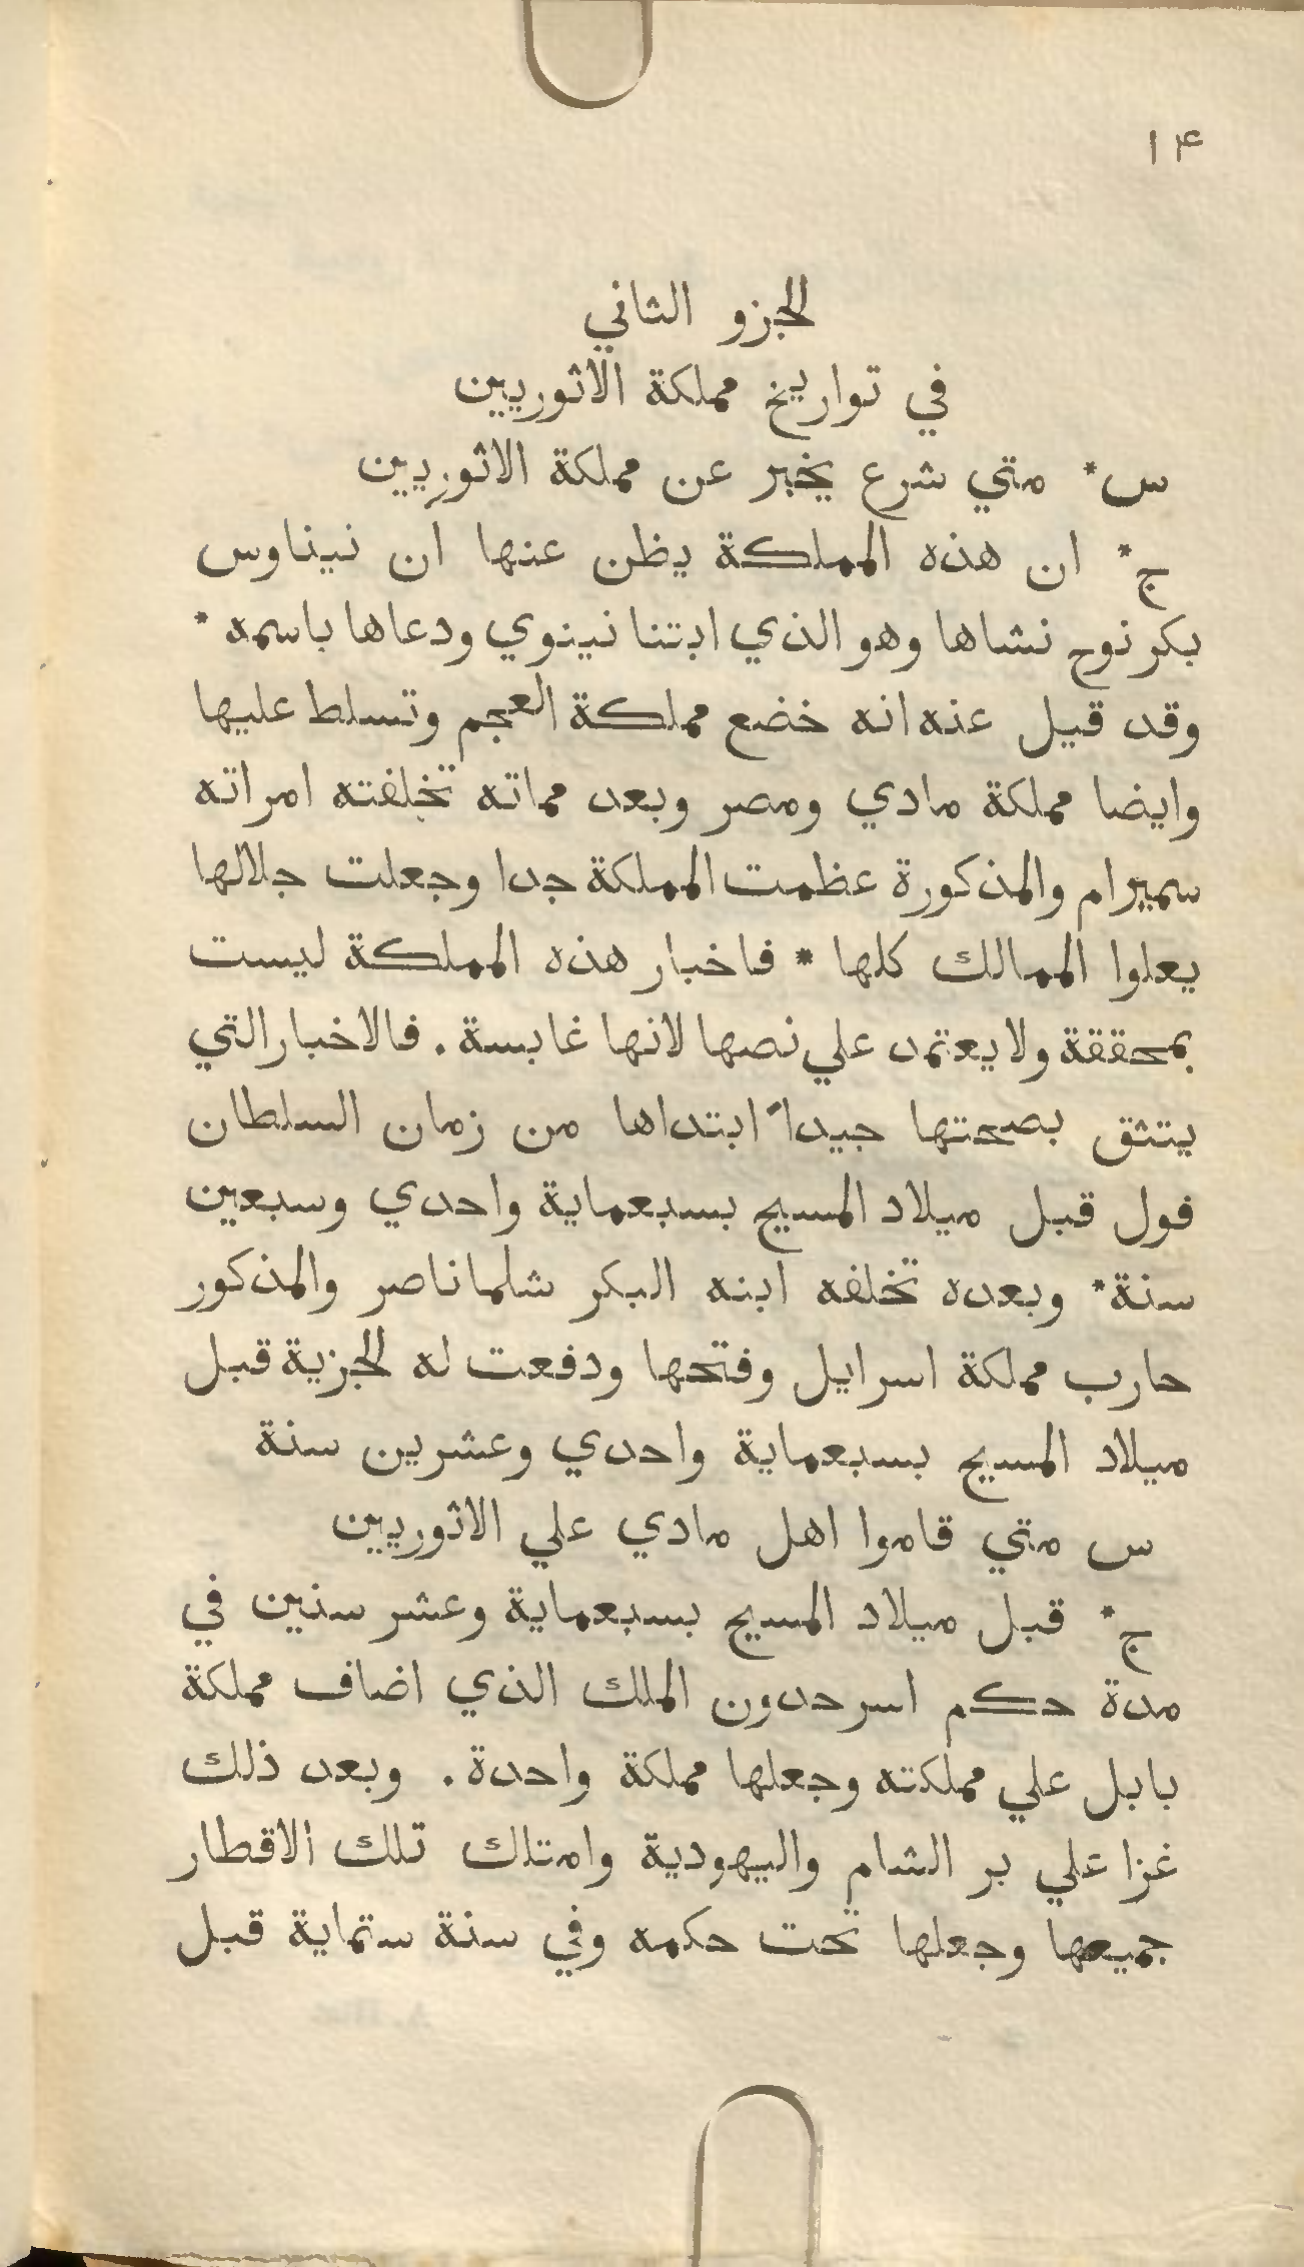 ١۴
الجزو الثاني
في تواريخ مملكة الاثوريين
س* متي شرع يخبر عن مملكة الاثوريين
ج* ان هذه المملكة يظن عنها ان نيناوس
بكر نوح نشاها وهو الذي ابتنا نينوي ودعاها باسمه *
وقد قيل عنه انه خضع مملكة العجم وتسلط عليها
وايضا مملكة مادي ومصر وبعد مماته تخلفته امراته
سميرام والمذكورة عظمت المملكة جدا وجعلت جلالها
يعلوا الممالك كلها * فاخبار هذه المملكة ليست
بمحققة ولا يعتمد علي نصها لانها غابسة. فالاخبار التي
يتثق بصحتها جيداً ابتداها من زمان السلطان
فول قبل ميلاد المسيح بسبعماية واحدي وسبعين
سنة* وبعده تخلفه ابنه البكر شلماناصر والمذكور
حارب مملكة اسرايل وفتحها ودفعت له الجزية قبل
ميلاد المسيح بسبعماية واحدي وعشرين سنة
س متي قاموا اهل مادي علي الاثوريين
ج* قبل ميلاد المسيح بسبعماية وعشر سنين في
مدة حكم اسرحدون الملك الذي اضاف مملكة
بابل علي مملكته وجعلها مملكة واحدة. وبعد ذلك
غزا علي بر الشام واليهودية وامتلك تلك الاقطار
جميعها وجعلها تحت حكمه وفي سنة ستماية قبل